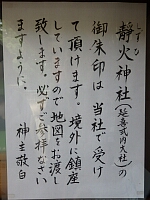 しずひ
靜火神社(延喜式内大社)の
御朱印は当社で受け
て頂けます。境外に鎮座
していますので地図をお渡し
致します。必ずご参拝なさい
ますように。
神主敬白